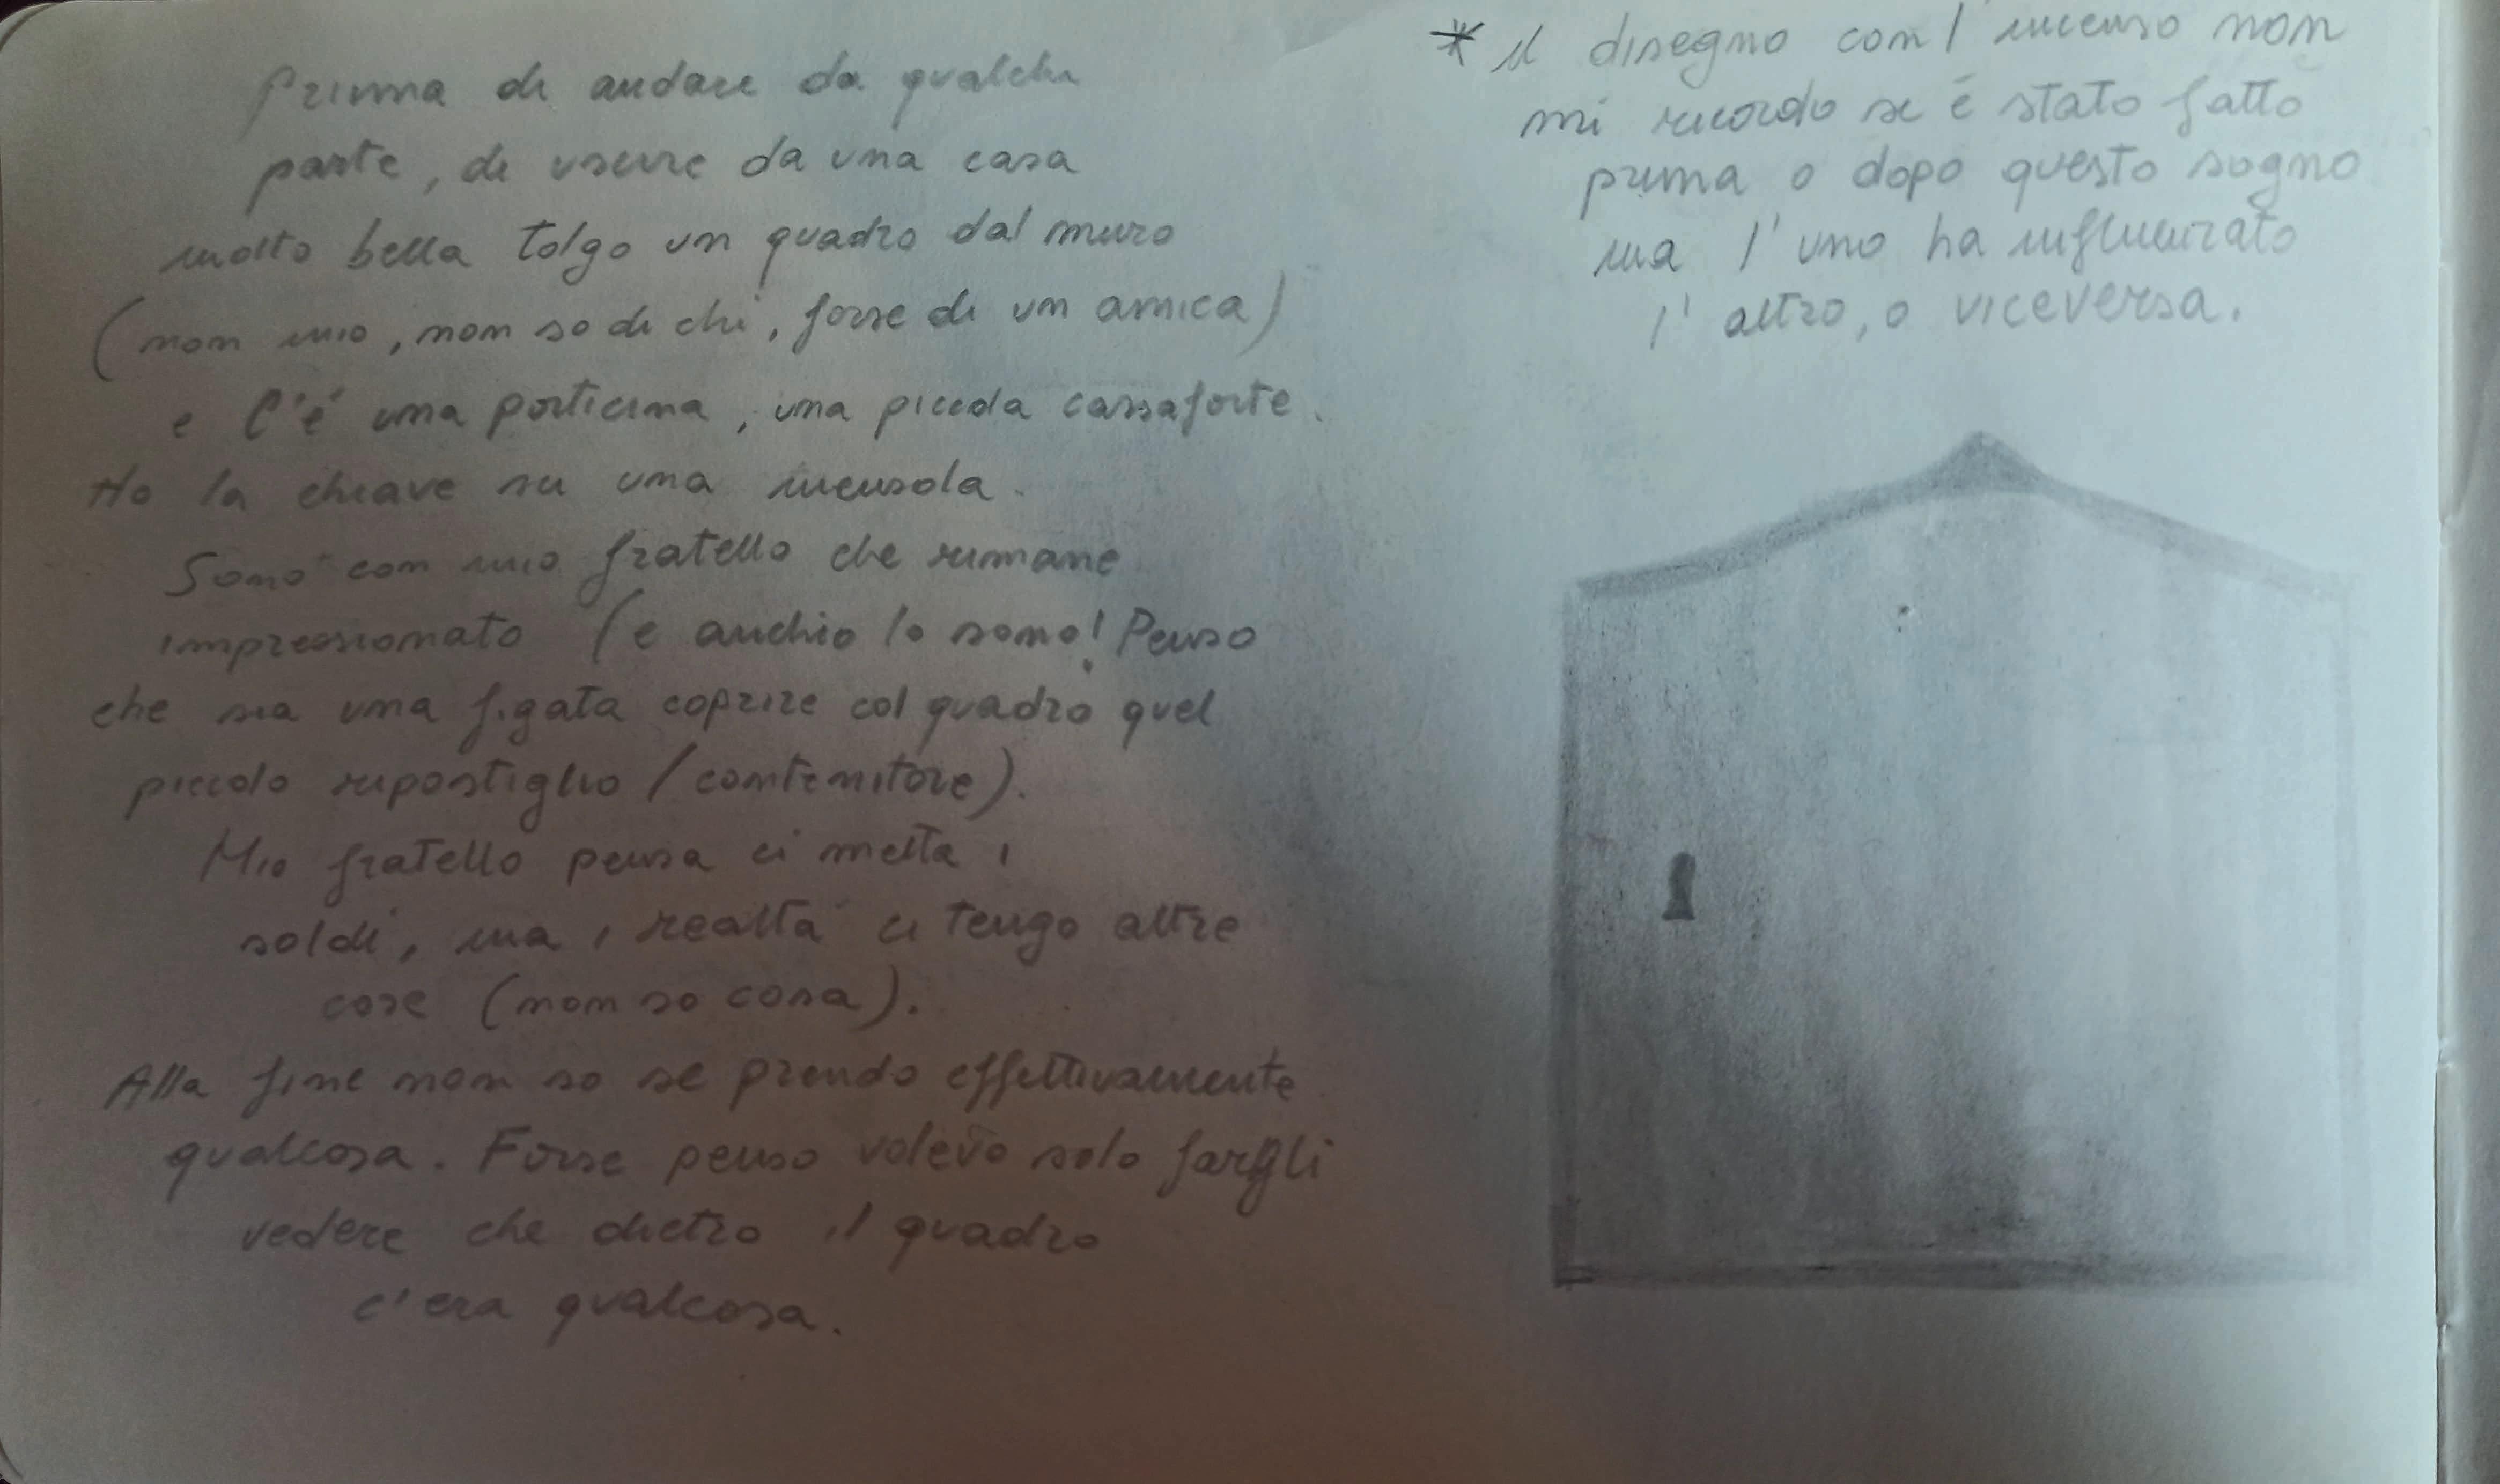 Prima di andare da qualche
parte, di uscire da una casa
molto bella tolgo un quadro dal muro
(non mio, non so di chi, forse di un amica)
e C'é una porticina, una piccola cassaforte.
Ho la chiave su una mensola.
Sono con mio fratello che rimane
impressionato (e anchio lo sono! Penso
che sia una figata coprire col quadro quel
piccolo ripostiglio/contenitore).
Mio fratello pensa ci metta i
soldi, ma i realtà ci tengo altre
cose (non so cosa).
Alla fine non so se prendo effettivamente
qualcosa. Forse penso volevo solo fargli
vedere che dietro il quadro
c'era qualcosa.
* Il disegno con l'incenso non
mi ricordo se é stato fatto
prima o dopo questo sogno
ma l'uno ha influenzato
l'altro, o viceversa.